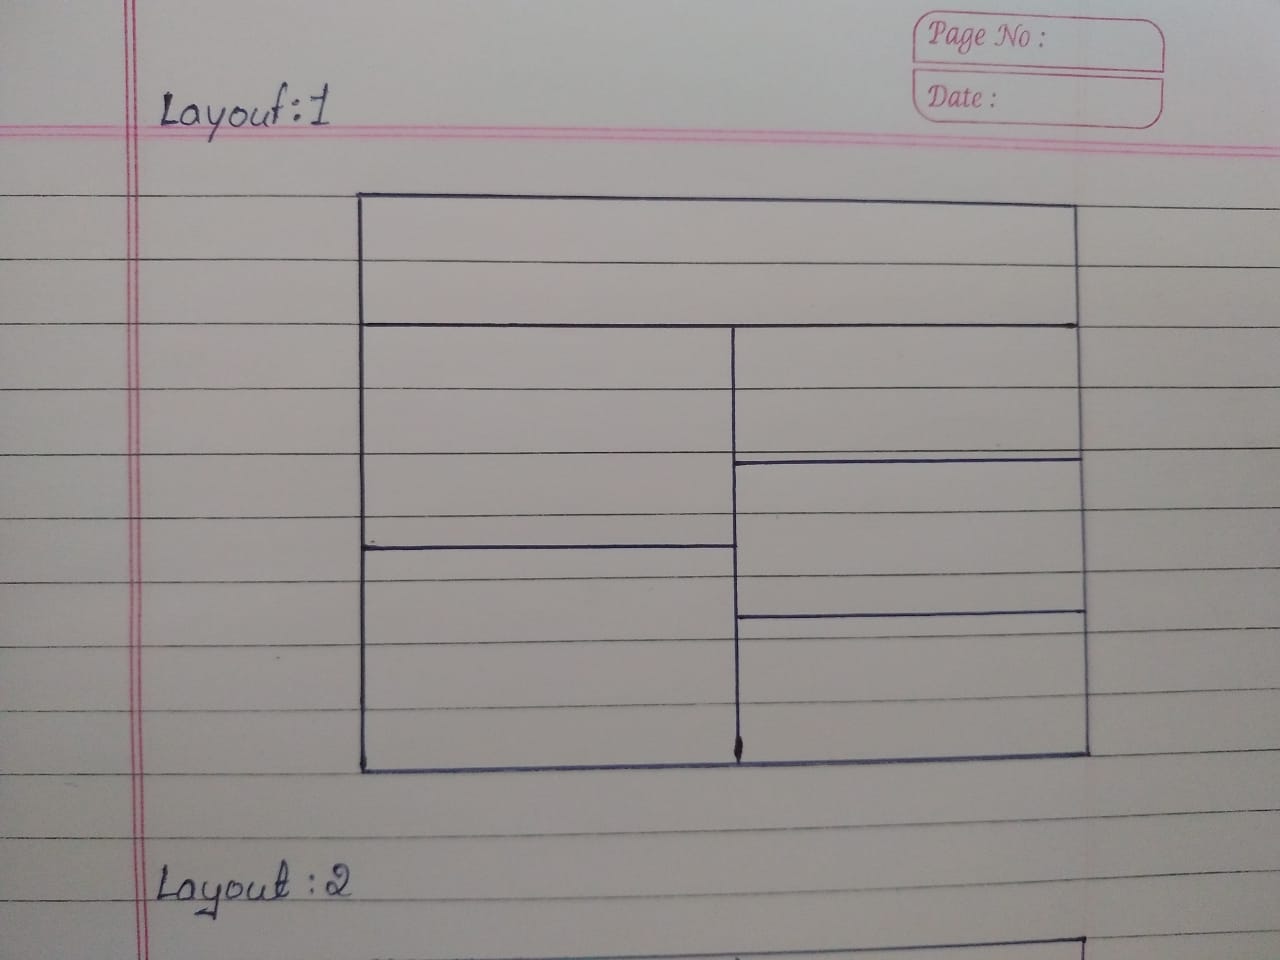 Page No :
Date :
Layout:1
Layout :2